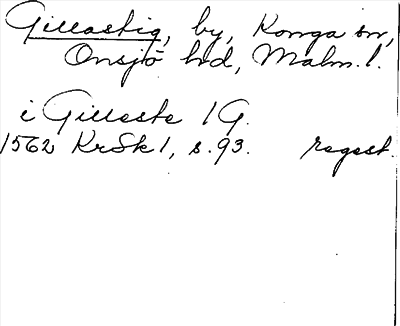 Gillastig, by, Konga sn,
Onsjö hd, Malm. l.
i Gilleste 1 G.
1562 KrSk 1, s. 93. regest.